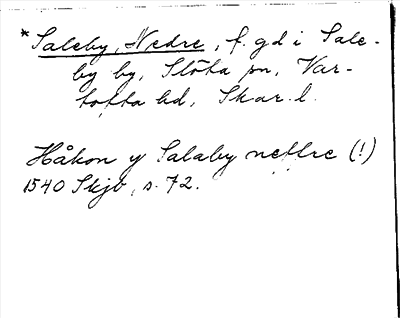 *Saleby, Nedre, f. gd i Sale-
by by, Slöta sn, Var-
tofta hd, Skar. l.
Håkon y Salaby nettre (!)
1540 Skjb, s. 72.